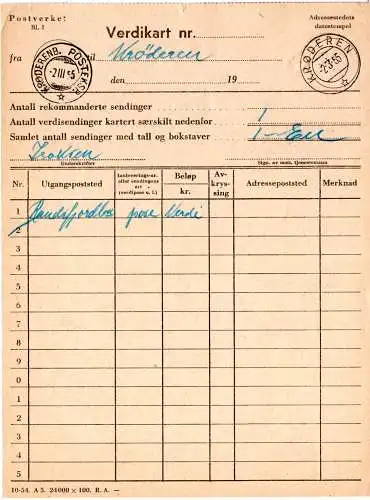 Postverket
Bl. 1
Verdikart nr.
Adressestedets
datostempel
fra KRØDERENB. POSTEKSP. -2 III 55 til Krøderen
KRØDEREN -2-3-55
den 19
Antall rekommanderte sendinger
Antall verdisendinger kartert særskilt nedenfor 1
Samlet antall sendinger med tall og bokstaver 1 - En
Underskrifter
Sign. av mott. tjenestemann
Nr. Utgangspoststed Innleverings-nr. eller sendingens art (verdipose o. l.) Beløp kr. Av- krys- sing Adressepoststed Merknad
1 Randsfjordbn pose Verdi
2
3
4
5
6
7
8
9
0
1
2
3
4
5
10-54. A 5. 24000 × 100. R. A. —